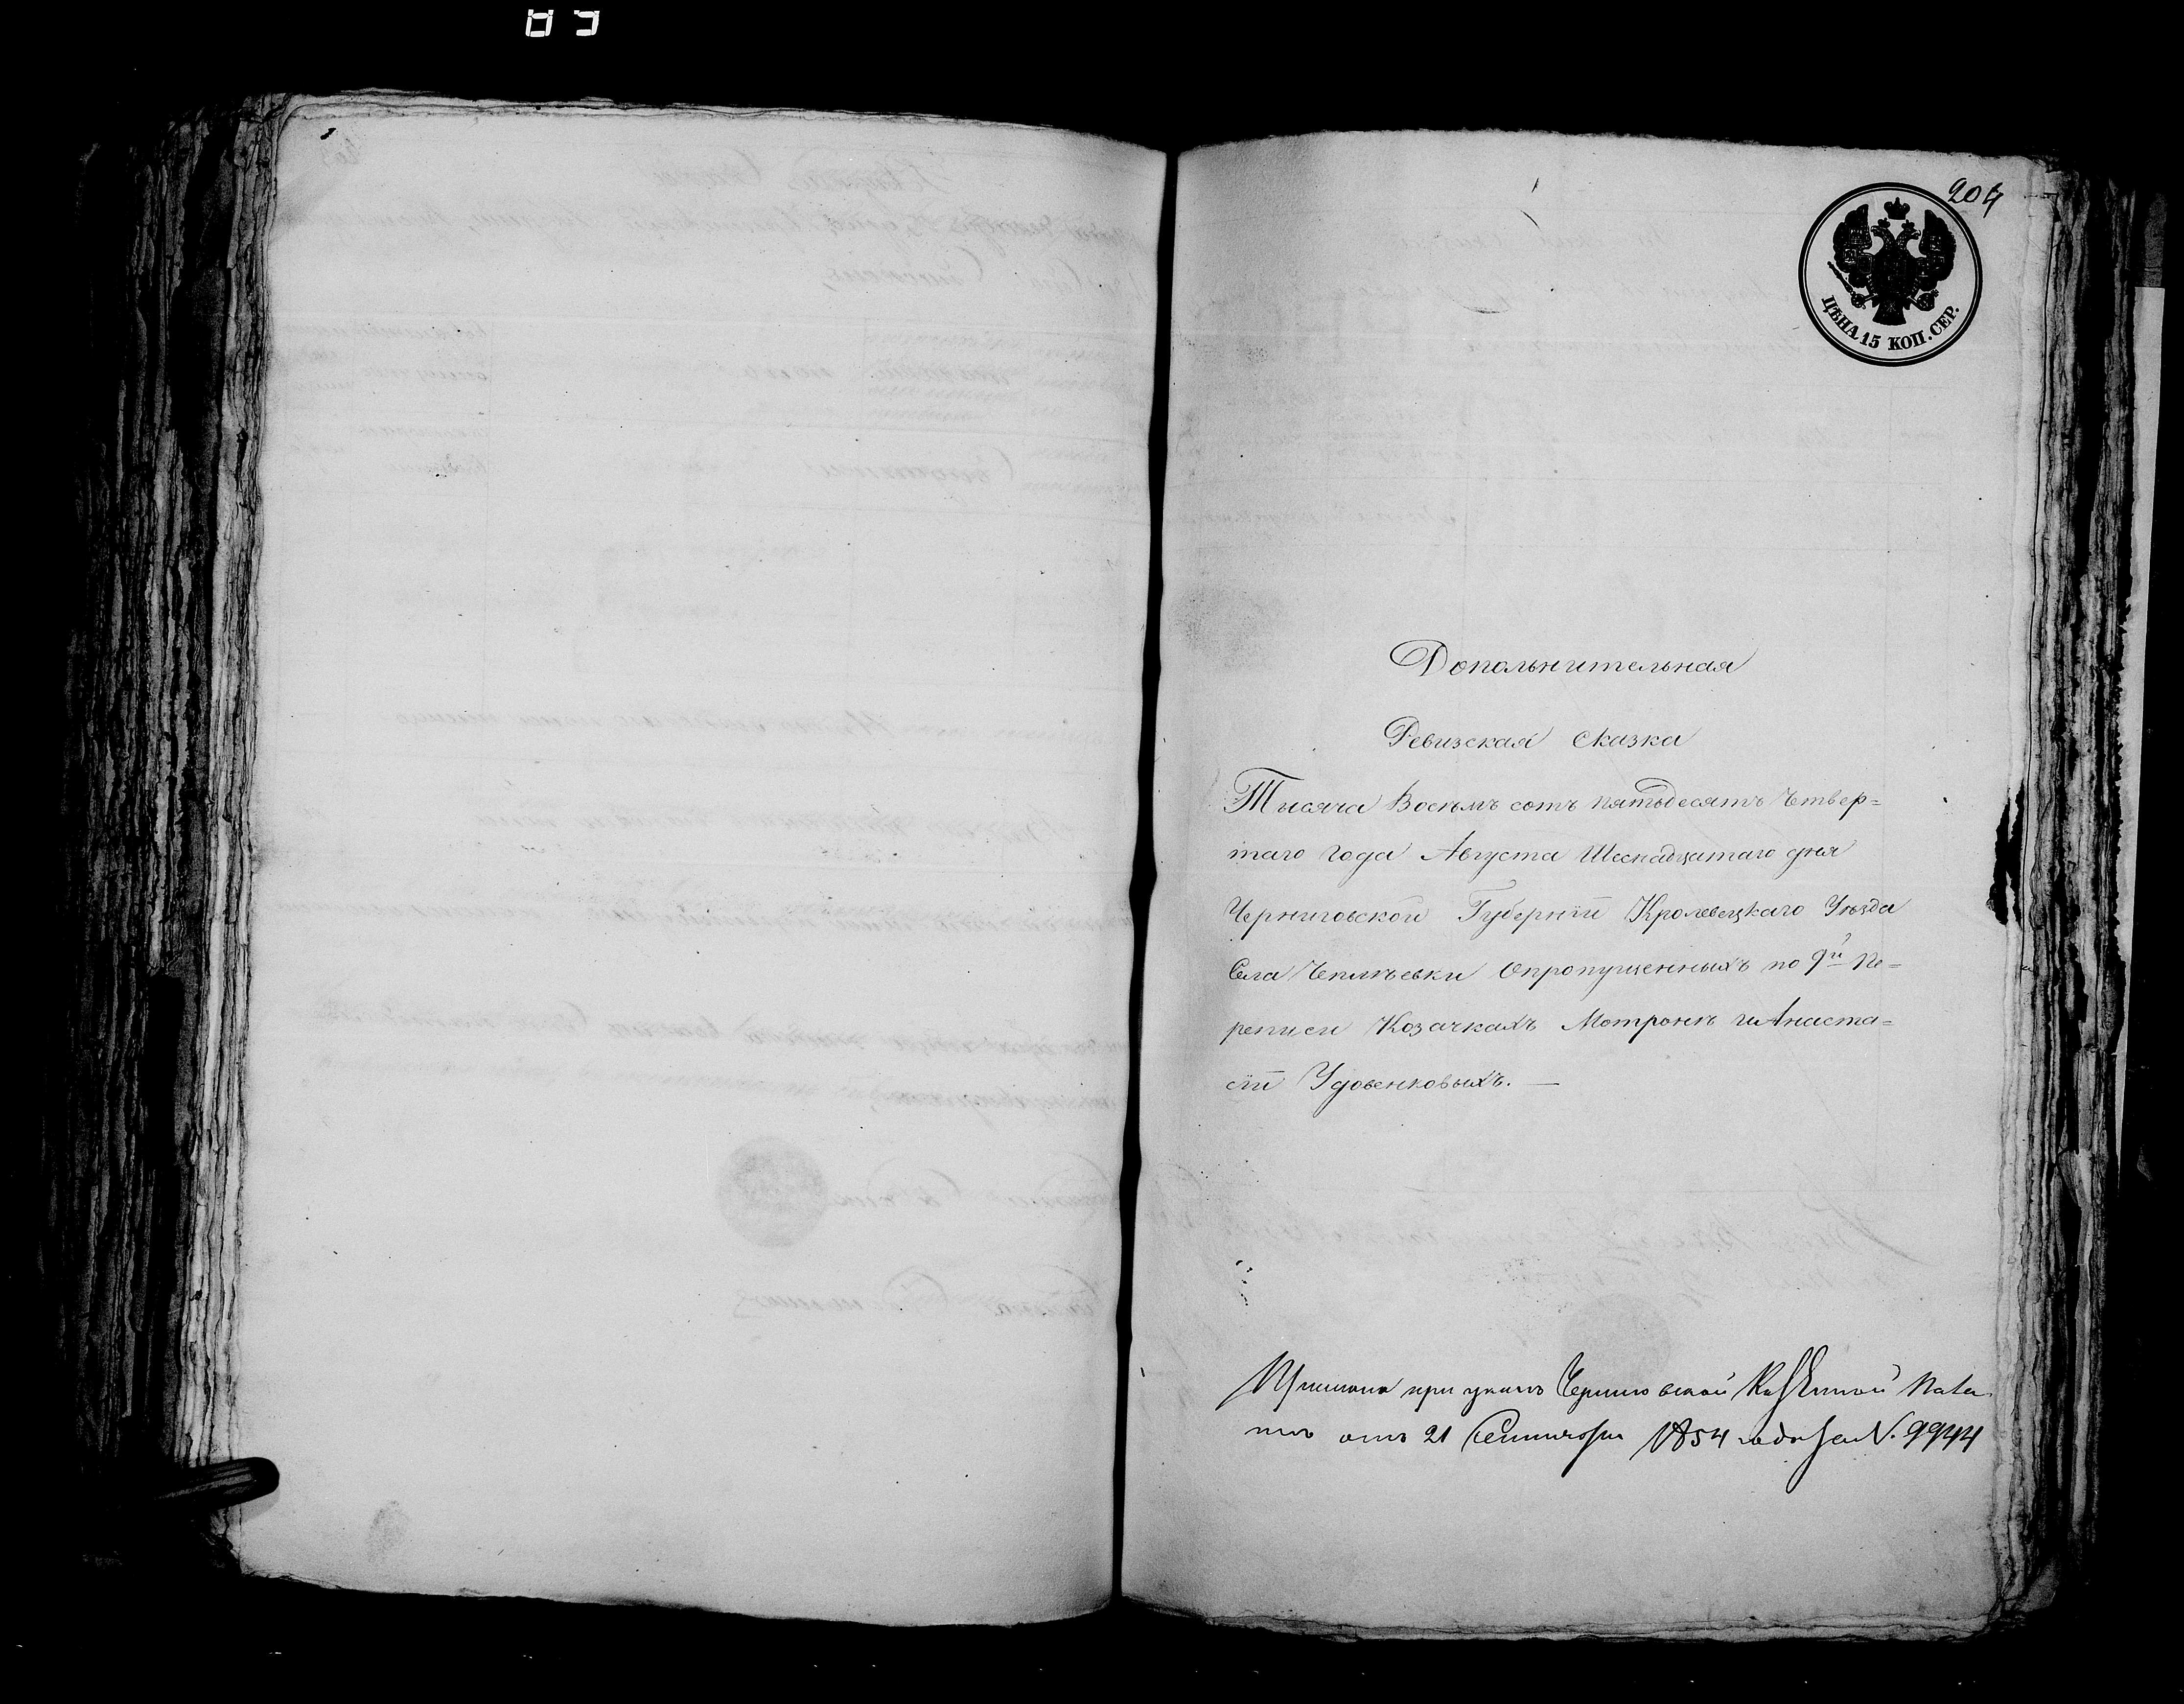 204
ЦѢНА 15 КОП. СЕР.
Дополнительная
Ревизская Сказка
Тысяча Восѣмъ сотъ пятьдесятъ Четвер=
таго года Августа Шеснадцатаго дня
Черниговской Губерніи Кролевецкаго Уѣзда
Села Чепліевки Опропущенныхъ по 9й Пе=
реписи Козачкахъ Мотронѣ и Анаста=
сіи Удовенковыхъ. —
при указѣ Черниговской Казенной Пала
ты отъ 21 Сентября 1854 года за N. 9944